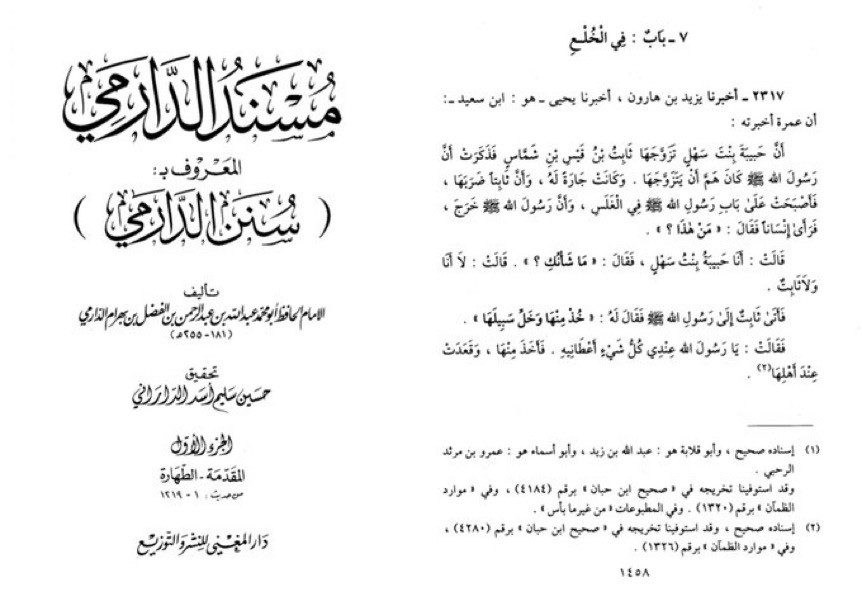 ٧ - بَابٌ : فِي الْخُلْعِ
٢٣١٧ - أخبرنا يزيد بن هارون ، أخبرنا يحيى - هو : ابن سعيد - :
أن عمرة أخبرته :
أَنَّ حَبِيبَةَ بِنْتَ سَهْلٍ تَزَوَّجَهَا ثَابِتُ بْنُ قَيْسِ بْنِ شَمَّاسٍ فَذَكَرَتْ أَنَّ
رَسُولَ اللهِ ﷺ كَانَ هَمَّ أَنْ يَتَزَوَّجَهَا . وَكَانَتْ جَارَةً لَهُ ، وَأَنَّ ثَابِتاً ضَرَبَهَا ،
فَأَصْبَحَتْ عَلَىٰ بَابِ رَسُولِ اللهِ ﷺ فِي الْغَلَسِ ، وَأَنَّ رَسُولَ اللهِ ﷺ خَرَجَ ،
فَرَأَىٰ إِنْسَاناً فَقَالَ : « مَنْ هٰذَا ؟ » .
قَالَتْ : أَنَا حَبِيبَةُ بِنْتُ سَهْلٍ ، فَقَالَ : « مَا شَأْنُكِ ؟ » . قَالَتْ : لاَ أَنَا
وَلاَ ثَابِتٌ .
فَأَتَىٰ ثَابِتٌ إِلَىٰ رَسُولِ اللهِ ﷺ فَقَالَ لَهُ : « خُذْ مِنْهَا وَخَلِّ سَبِيلَهَا » .
فَقَالَتْ : يَا رَسُولَ اللهِ عِنْدِي كُلُّ شَيْءٍ أَعْطَانِيهِ . فَأَخَذَ مِنْهَا ، وَقَعَدَتْ
عِنْدَ أَهْلِهَا(٢) .
(١) إسناده صحيح ، وأبو قلابة هو : عبد الله بن زيد ، وأبو أسماء هو : عمرو بن مرثد
الرحبي .
وقد استوفينا تخريجه في « صحيح ابن حبان » برقم (٤١٨٤) ، وفي « موارد
الظمآن » برقم (١٣٢٠) . وفي المطبوعات « من غير ما بأس » .
(٢) إسناده صحيح ، وقد استوفينا تخريجه في « صحيح ابن حبان » برقم (٤٢٨٠) ،
وفي « موارد الظمآن » برقم (١٣٢٦) .
١٤٥٨
مُسْنَدُ الدَّارِمِي
المَعْرُوف بـ :
( سُنَن الدَّارِمِي )
تأليف
الإمام الحافظ أبو محمد عبد الله بن عبد الرحمن بن الفضل بن بهرام الدارمي
(١٨١ - ٢٥٥ هـ)
تحقيق
حسين سليم أسد الدّاراني
الجزء الأول
المقدّمة - الطّهارة
من حديث : ١ - ١٢١٩
دار المغني للنشر والتوزيع